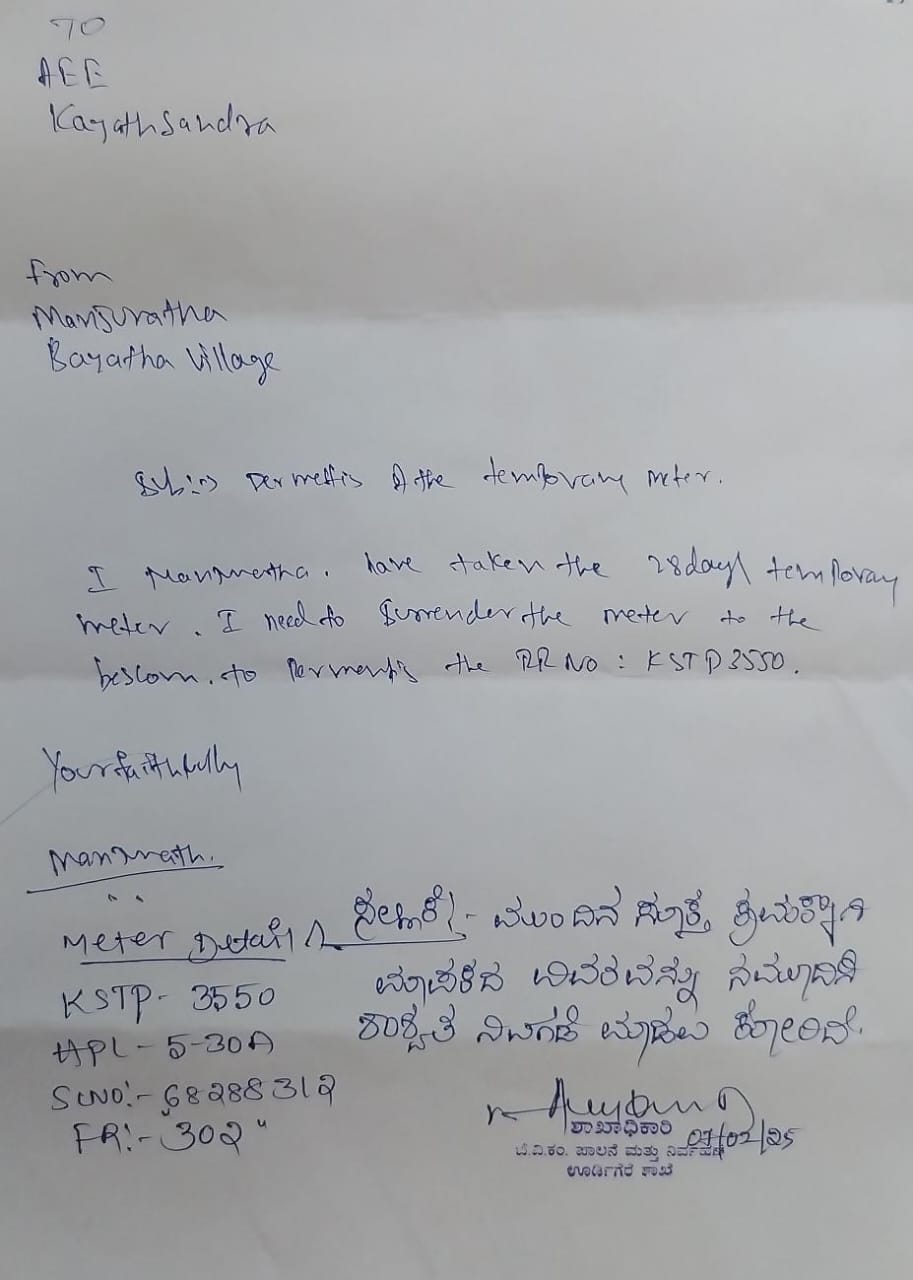 TO
AEE
Kayathsandra
from
Manjunatha
Bayatha Village
Sub:-> Permettis of the temporary meter.
I Manjunatha. have taken the 28 days temporary
meter. I need to surrender the meter to the
bescom. to the RR NO : KSTP3550.
Your faithfully
Manjunath.
Meter Details
KSTP- 3550
HPL - 5-30A
SLNO:- 68288312
FR:- 302
ಮುಂದಿನ ಸೂಕ್ತ ಕ್ರಮಕ್ಕಾಗಿ
ಮಾಪಕದ ವಿವರವನ್ನು
ಶಾಶ್ವತ ನಿಲುಗಡೆ ಮಾಡಲು ಕೋರಿದೆ.
07/02/25
ಶಾಖಾಧಿಕಾರಿ
ಬೆ.ವಿ.ಕಂ. ಪಾಲನೆ ಮತ್ತು ನಿರ್ವಹಣೆ
ಊರ್ಡಿಗೆರೆ ಶಾಖೆ